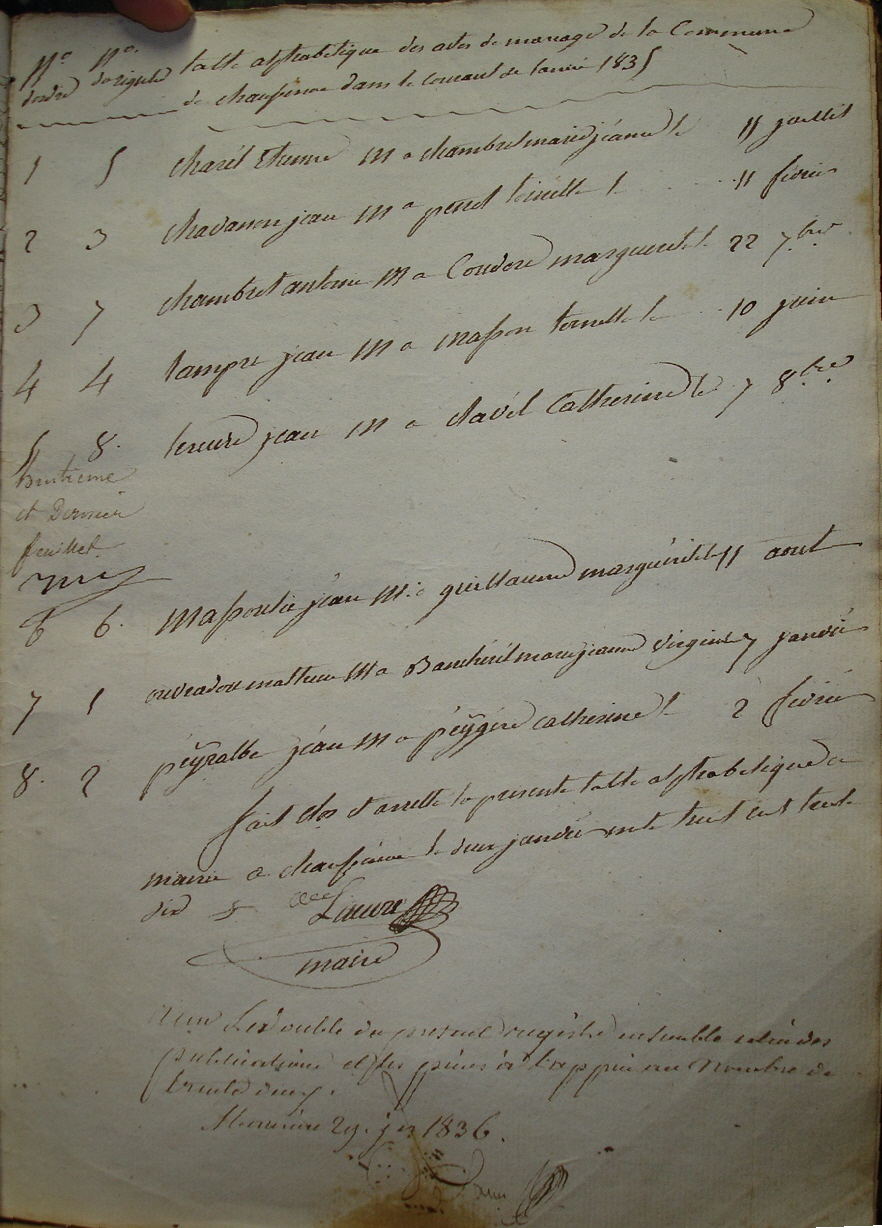 Nº Nº table alphabetique des actes de mariage de la Commune
dordre dorigine de chauffour dans le courant de lannée 1835
1 5 Charél Etienne M a chambret marie jeanne le 11 juillet
2 3 chavanon jean M a peret toinette l 11 fevrier
3 7 chambret antoine M a Couderc marguerite l 22 7bre
4 4 lampre jean M a masson toinette le 10 juin
5 8. lieuvre jean M a clavél Catherine le 7 8bre
huitieme
et Dernier
feuillet.
6 6. Massoulie jean M a guillaume marguerite le 11 aout
7 1 ouvradou mathieu M a marie jeanne virginie 7 janvié
8. 2 peÿralbe jean M a peÿgere catherine l 2 fevrié
fait clos et arretté la presente table alphabetique a
mairie a le deux janvié mile huit cent trente
six Lieuvre
maire
le double du present registre ensemble celui des
publications et les pièces à l'appui au Nombre de
trente deux.
29 jer 1836.